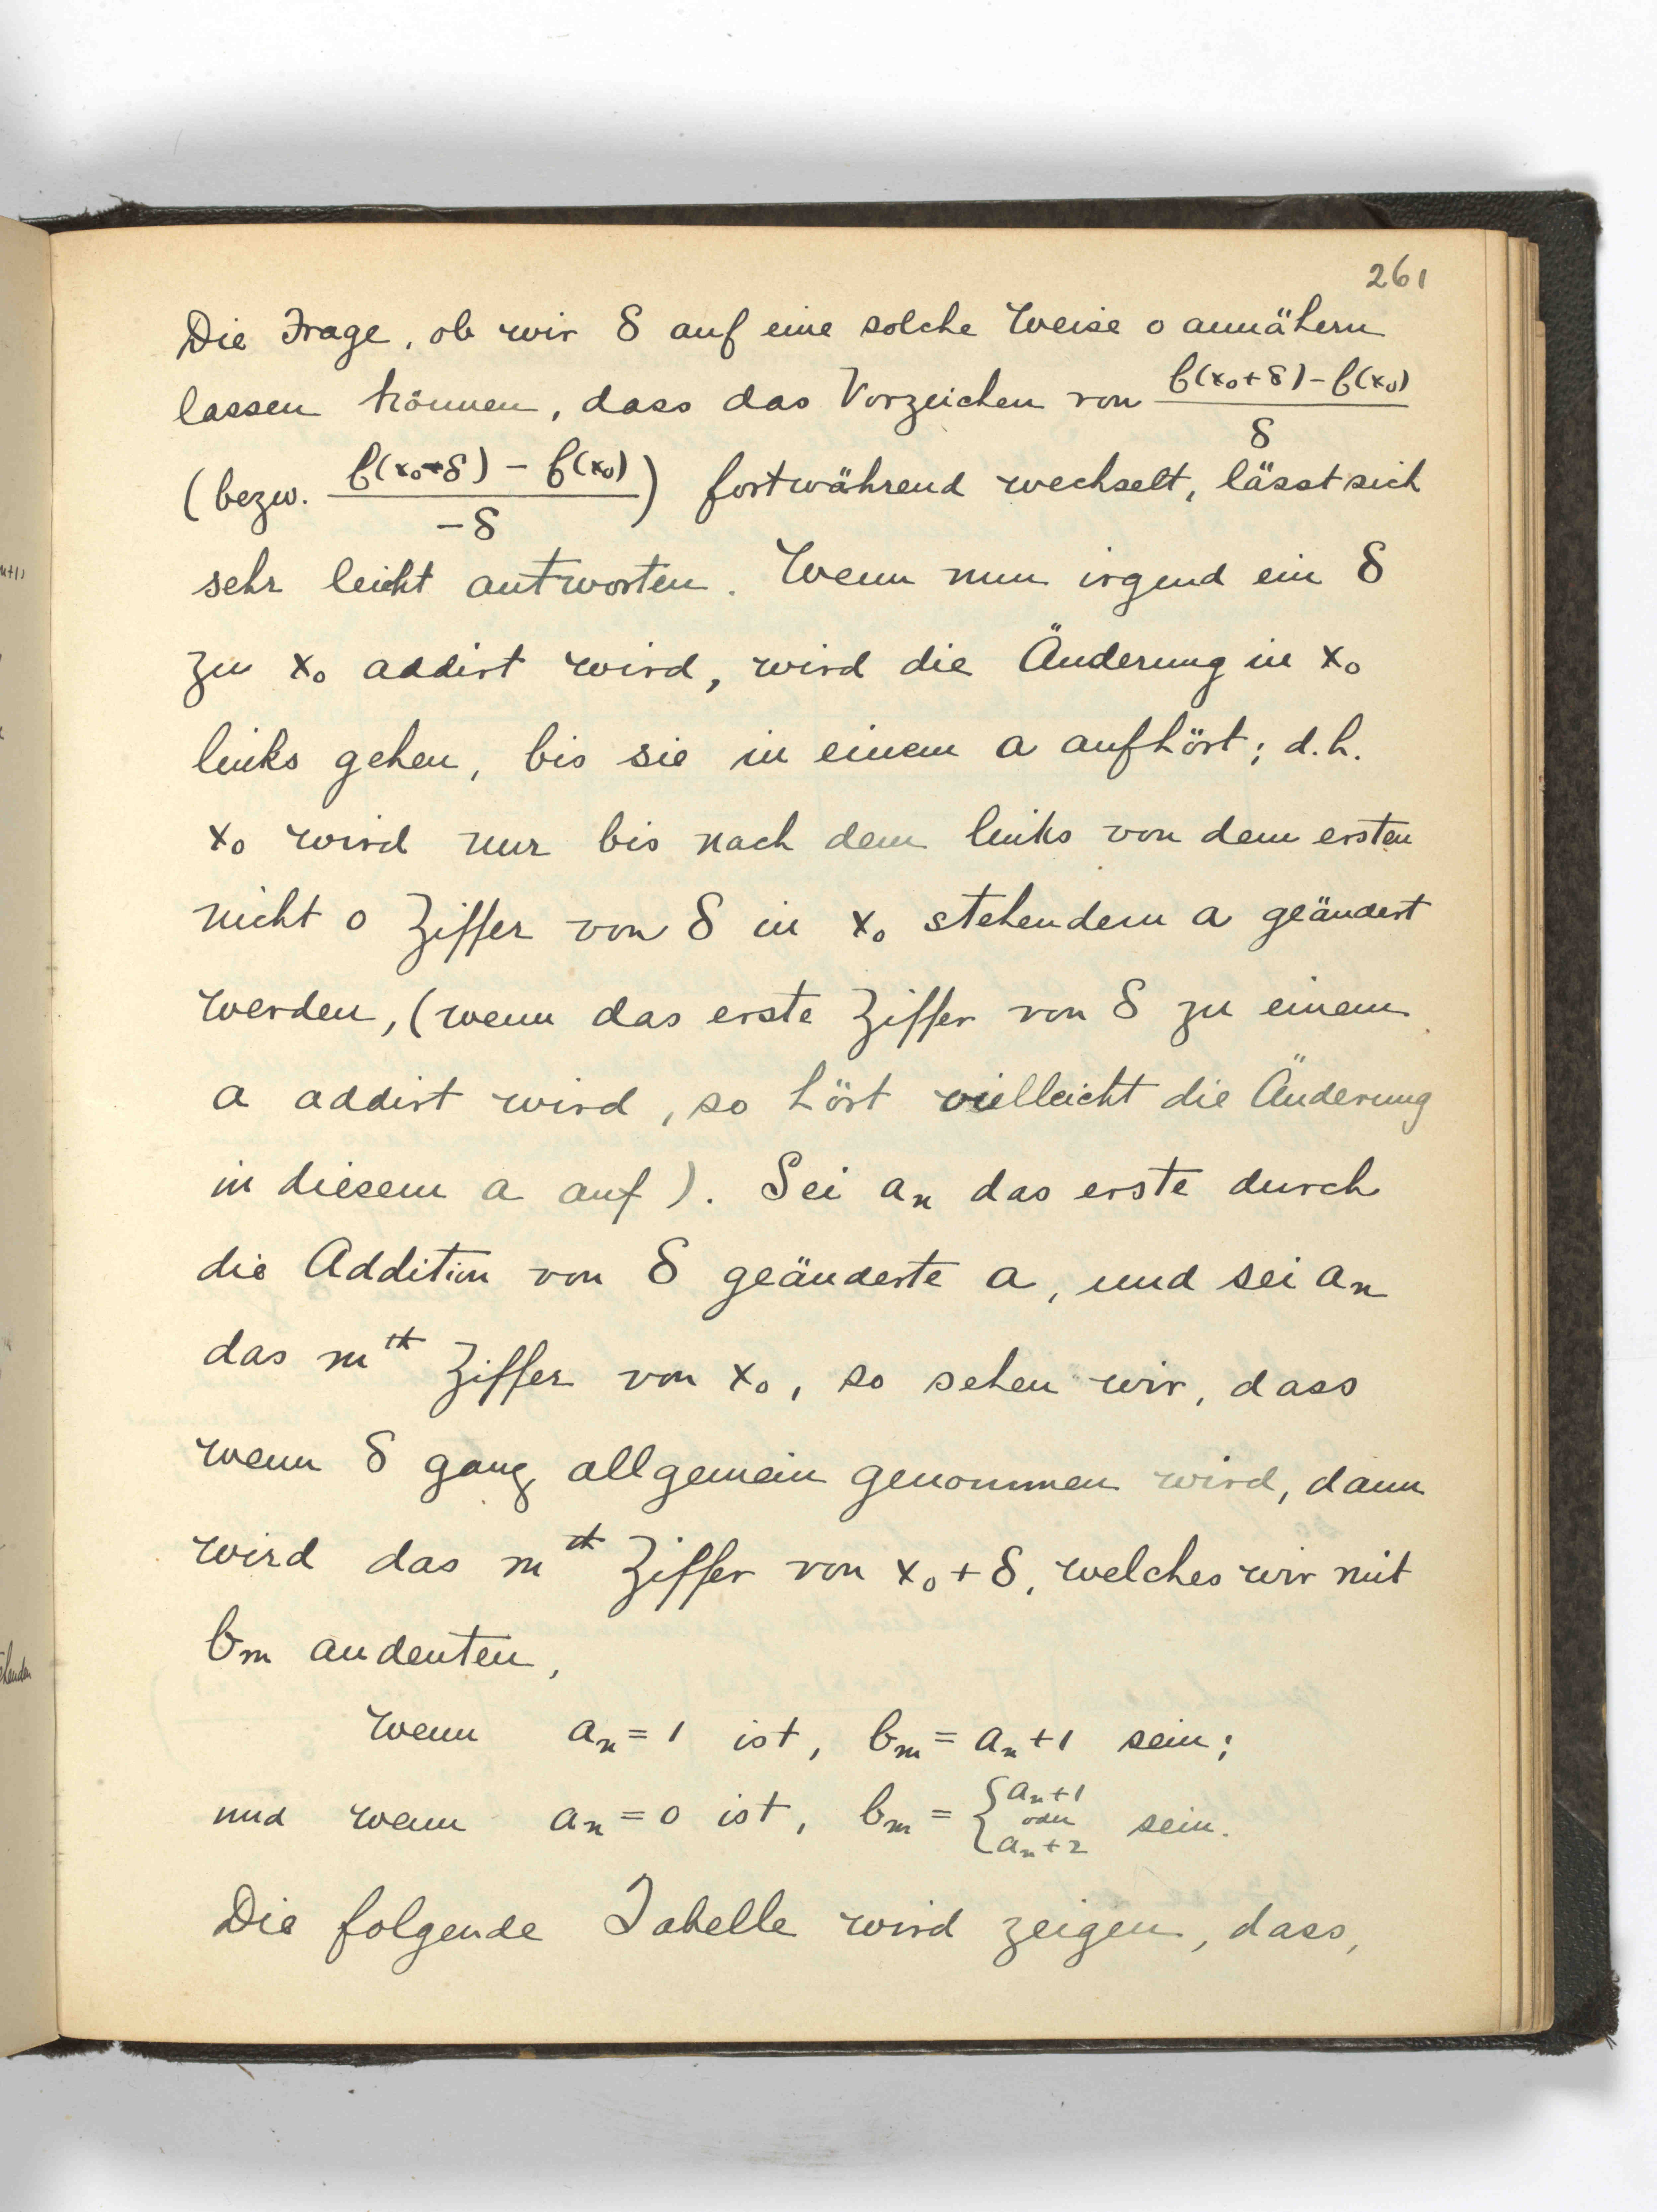 261
Die Frage, ob wir δ auf eine solche Weise 0 annähern
lassen können, dass das Vorzeichen von (f(x₀+δ)−f(x₀))/δ
(bezw. (f(x₀-δ) − f(x₀))/−δ) fortwährend wechselt, lässt sich
sehr leicht antworten. Wenn nun irgend ein δ
zu x₀ addirt wird, wird die Änderung in x₀
links gehen, bis sie in einem a aufhört; d.h.
x₀ wird nur bis nach dem links von dem ersten
nicht 0 Ziffer von δ in x₀ stehendem a geändert
werden, (wenn das erste Ziffer von δ zu einem
a addirt wird, so hört vielleicht die Änderung
in diesem a auf). Sei aₙ das erste durch
die Addition von δ geänderte a, und sei aₙ
das m^te Ziffer von x₀, so sehen wir, dass
wenn δ ganz allgemein genommen wird, dann
wird das m^te Ziffer von x₀+δ, welches wir mit
bₘ andeuten,
wenn aₙ = 1 ist, bₘ = aₙ+1 sein;
und wenn aₙ = 0 ist, bₘ = {aₙ+1 oder aₙ+2 sein.
Die folgende Tabelle wird zeigen, dass,